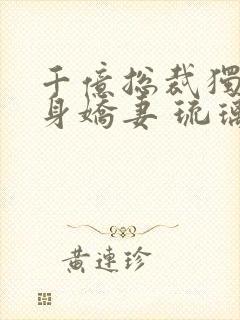 千億總裁獨
身嬌妻 琉璃
黃連珍